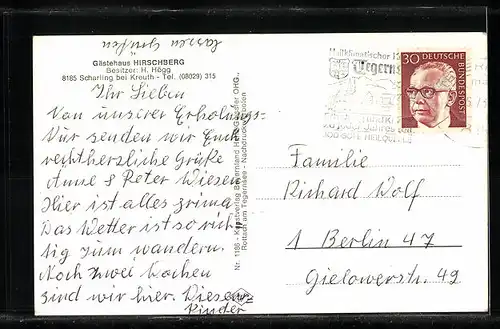 lassen grüßen
Gästehaus HIRSCHBERG
Besitzer: H. Högg
8185 Scharling bei Kreuth - Tel. (08029) 315
Ihr Lieben
Von unserer Erholungs-
Kur senden wir Euch
recht herzliche Grüße
Anne & Peter Wiesen
Hier ist alles prima
Das Wetter ist so rich
tig zum wandern.
Noch zwei Wochen
sind wir hier. Diesen
Kinder
Nr. 1186 - Kunstverlag
Rottach am Tegernsee - Nachdruck verboten
Heilklimatischer
Tegerns
zu jeder Jahreszeit
30
DEUTSCHE
BUNDESPOST
Familie
Richard Wolf
1 Berlin 47
Gielowerstr. 49